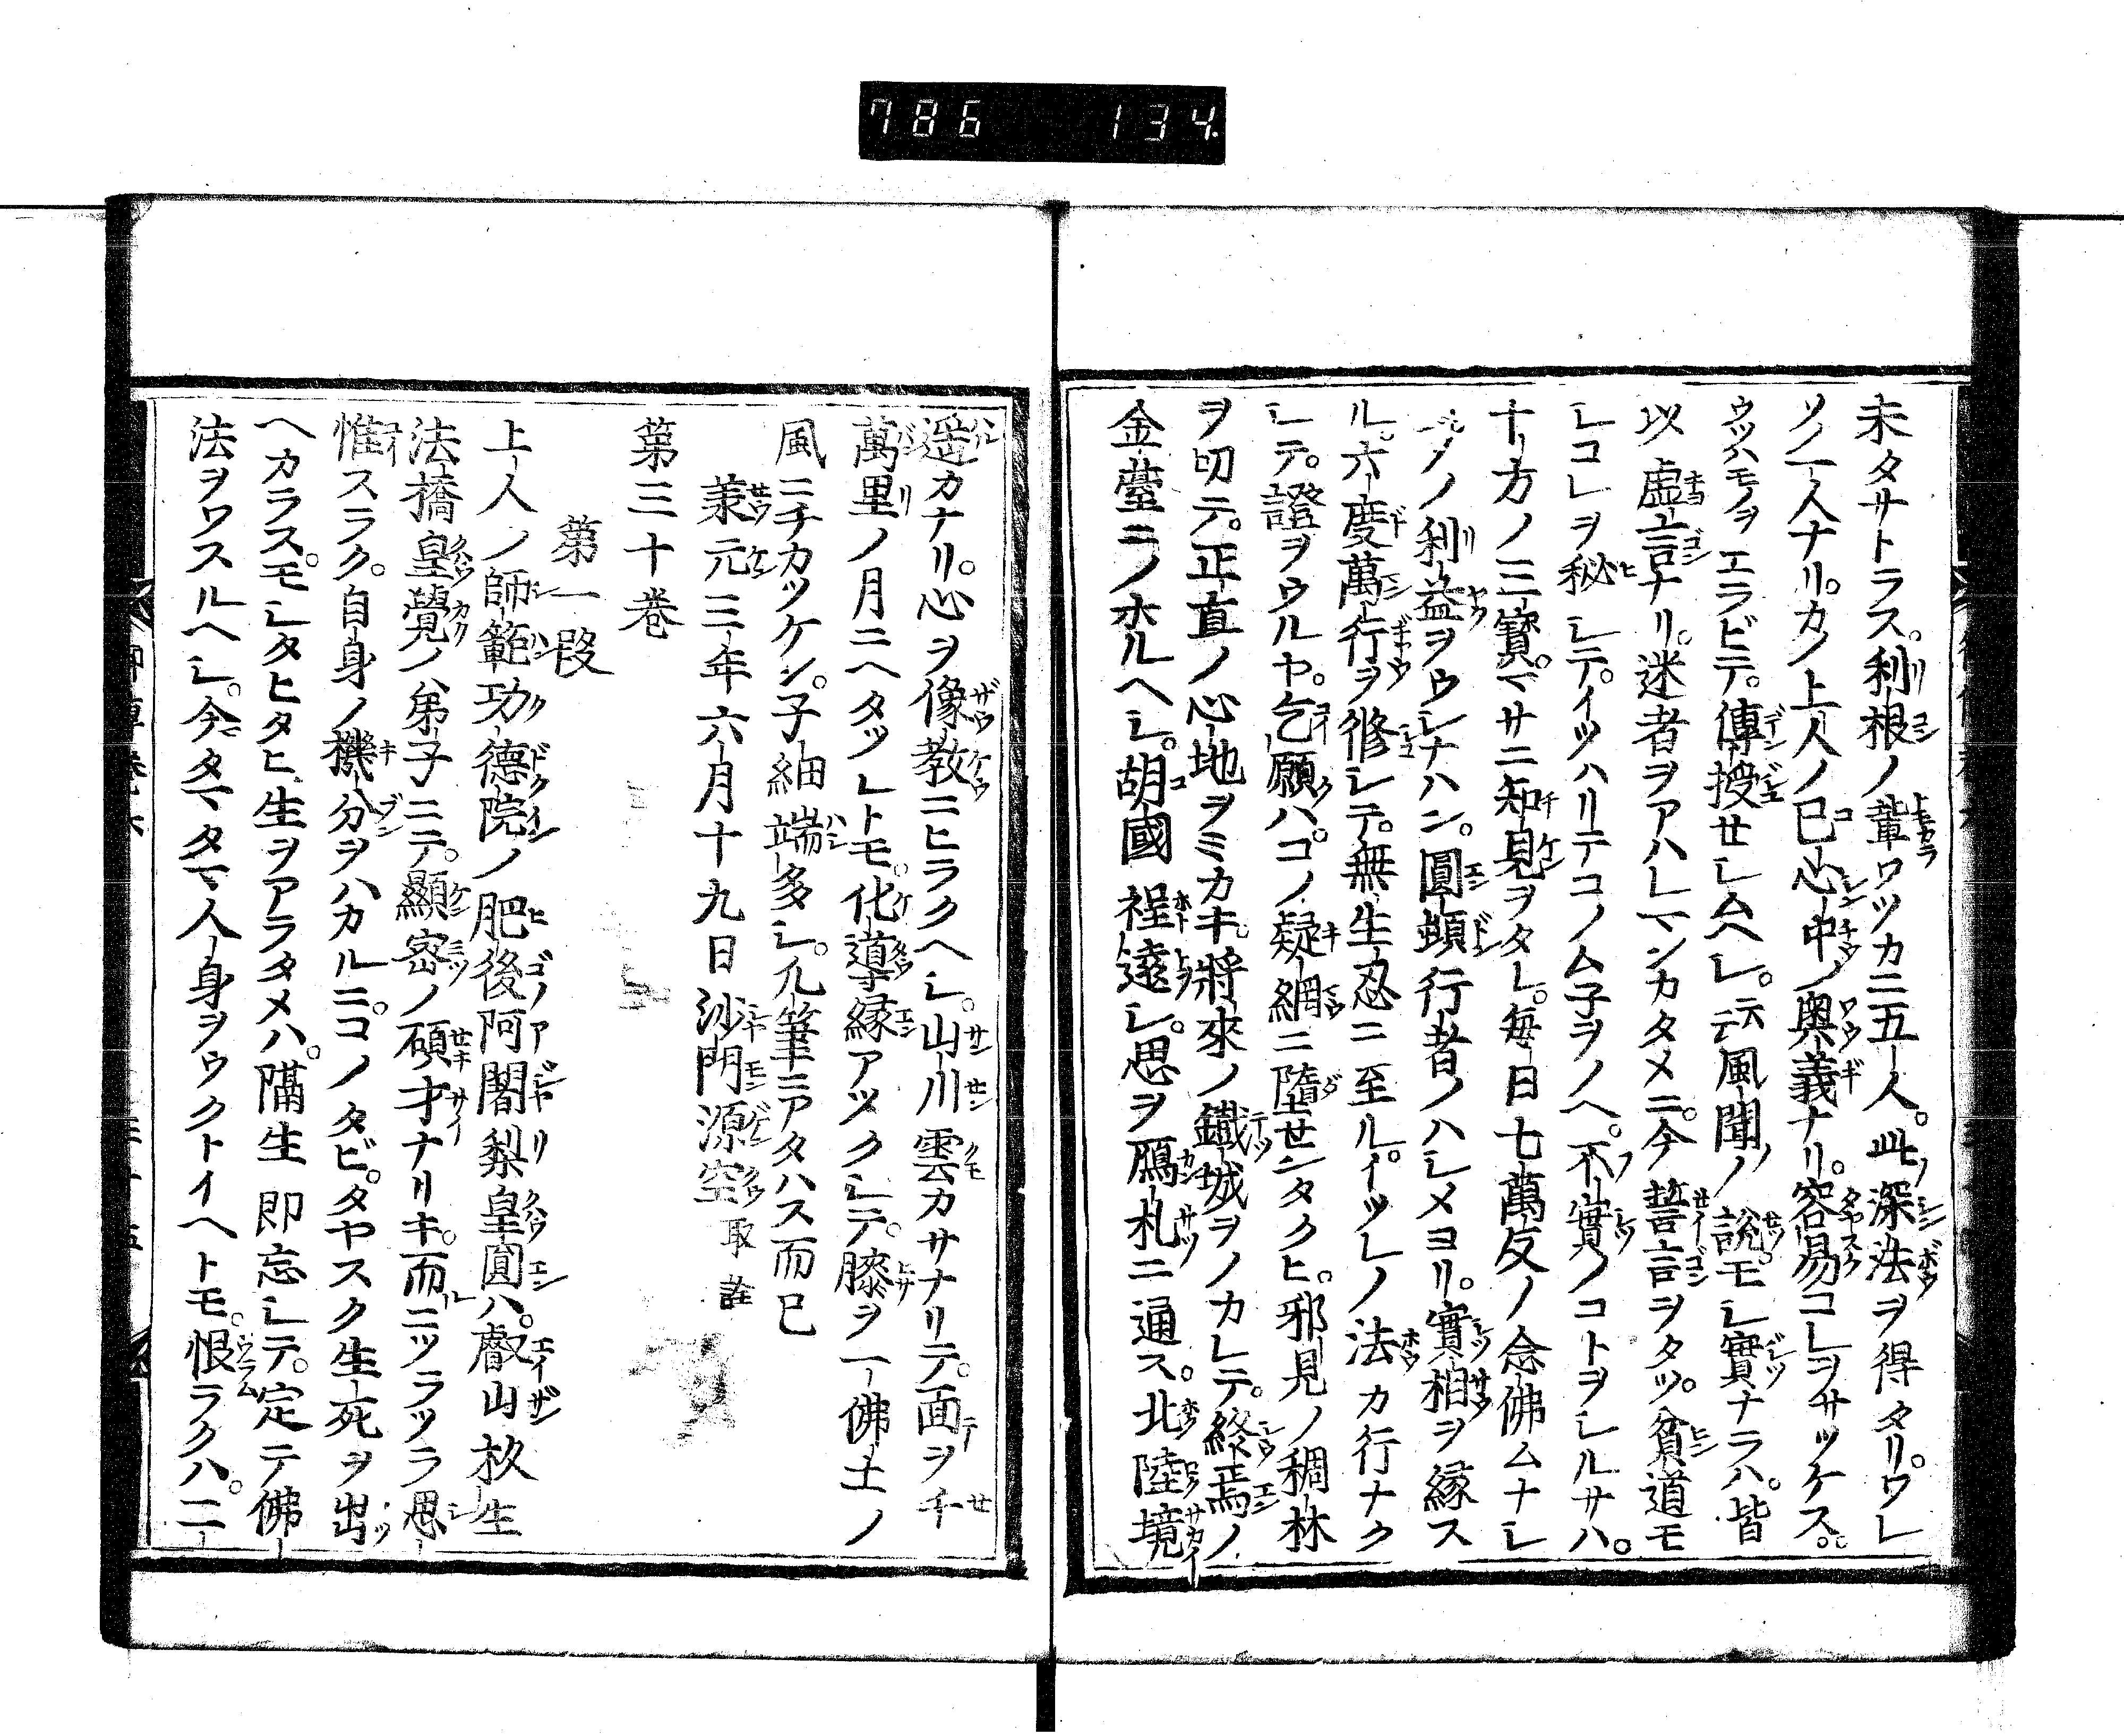 786 134
未タサトラス。利根ノ輩ワツカニ五人。此深法ヲ得タリ。ワレ
ソノ一人ナリ。カノ上人ノ已心中ノ奥義ナリ。容易コレヲサツケス。
ウツハモノヲエラビテ。傳授セシムヘシ。云云風聞ノ説モシ實ナラハ。皆
以虚言ナリ。迷者ヲアハレマンカタメニ。今誓言ヲタツ。貧道モ
シコレヲ秘シテ。イツハリテコノム子ヲノヘ。不實ノコトヲシルサハ。
十方ノ三寶。マサニ知見ヲタレ。毎日七萬反ノ念佛ムナシ
ノ利益ヲウシナハン。圓頓行者ノハシメヨリ。實相ヲ縁ス
ル。六度萬行ヲ修シテ。無生忍ニ至ル。イツレノ法カ行ナク
シテ。證ヲウルヤ。乞願ハ。コノ疑網ニ墮センタクヒ。邪見ノ稠林
ヲ切テ。正直ノ心地ヲミカキ。將來ノ鐵城ヲノカレテ。終焉ノ
金臺ニノホルヘシ。胡國程遠シ。思ヲ鴈札ニ通ス。北陸境
遥カナリ。心ヲ像教ニヒラクヘシ。山川雲カサナリテ。面ヲ千
萬里ノ月ニヘタツレトモ。化導縁アツクシテ。膝ヲ一佛土ノ
風ニチカツケン。子細端多シ。凡筆ニアタハス而已
兼元三年六月十九日 沙門源空 取詮
第三十巻
第一段
上人ノ師範功德院ノ肥後阿闍梨皇圓ハ。叡山杦生
法橋皇覺ノ弟子ニテ。顯密ノ碩才ナリキ。而ニツラツラ思
惟スラク。自身ノ機分ヲハカルニ。コノタビ。タヤスク生死ヲ出
ヘカラス。モシタヒタヒ生ヲアラタメハ。隔生即忘シテ。定テ佛
法ヲワスルヘシ。今タマタマ人身ヲウクトイヘトモ。恨ラクハ。二